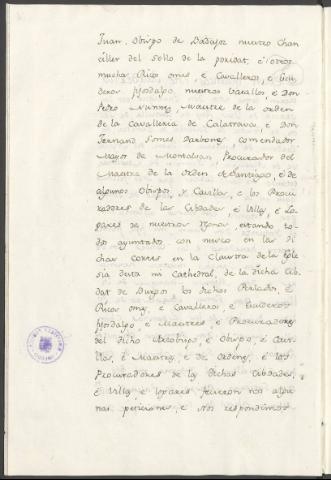 Juan, Obispo de Badajoz nuestro Chan
ciller del Sello de la poridat, é otros
muchos Ricos omes, é Cavalleros, é Escu
deros fijosdalgo nuestros Vasallos, é Don
Pedro Nunnez, Maestre de la Orden
de la Cavalleria de Calatrava, é Don
Fernand Gomes Darbones, comendador
Mayor de Montalvan, Procurador del
Maestre de la Orden de Santiago, é de
algunos Obispos, y Cavillos, é los Procu
radores de las Cibdades, é Villas, é Lo
gares de nuestros Regnos, estando to
dos ayuntados con nusco en las di
chas cortes en la Claustra de la Egle
sia desta mi Cathedral, de la dicha Cib
dat de Burgos los dichos Perlados, é
Ricos omes, é Cavalleros, é Escuderos
fijosdalgo, é Maestres, é Procuradores
del dicho Arzobispo, é Obispo, é Cavi
llos, é Maestres, é de Ordenes, é los
Procuradores de las dichas Cibdades,
é Villas, é logares ficieron nos algu
nas peticiones, é Nos respondimos